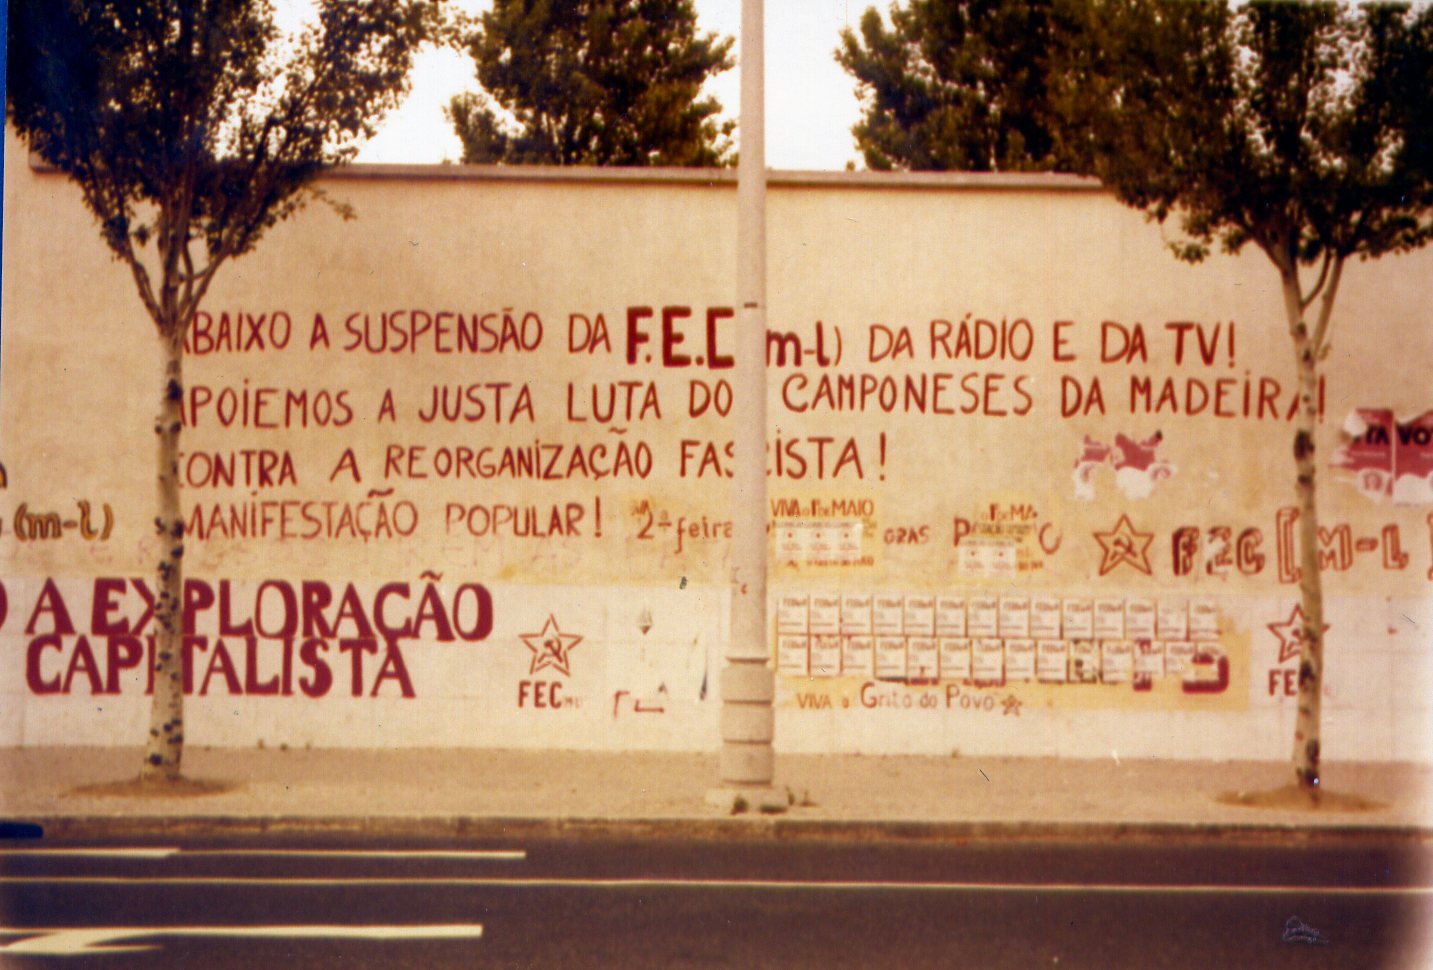 ABAIXO A SUSPENSÃO DA F.E.C (m-l) DA RÁDIO E DA TV!
APOIEMOS A JUSTA LUTA DOS CAMPONESES DA MADEIRA!
CONTRA A REORGANIZAÇÃO FASCISTA!
MANIFESTAÇÃO POPULAR! 2ª feira
VIVA o 1º DE MAIO
ORAS
1º DE MA
(m-l)
FEC (M-L)
VO
A EXPLORAÇÃO
CAPITALISTA
FEC ML
VIVA o Grito do Povo
FE